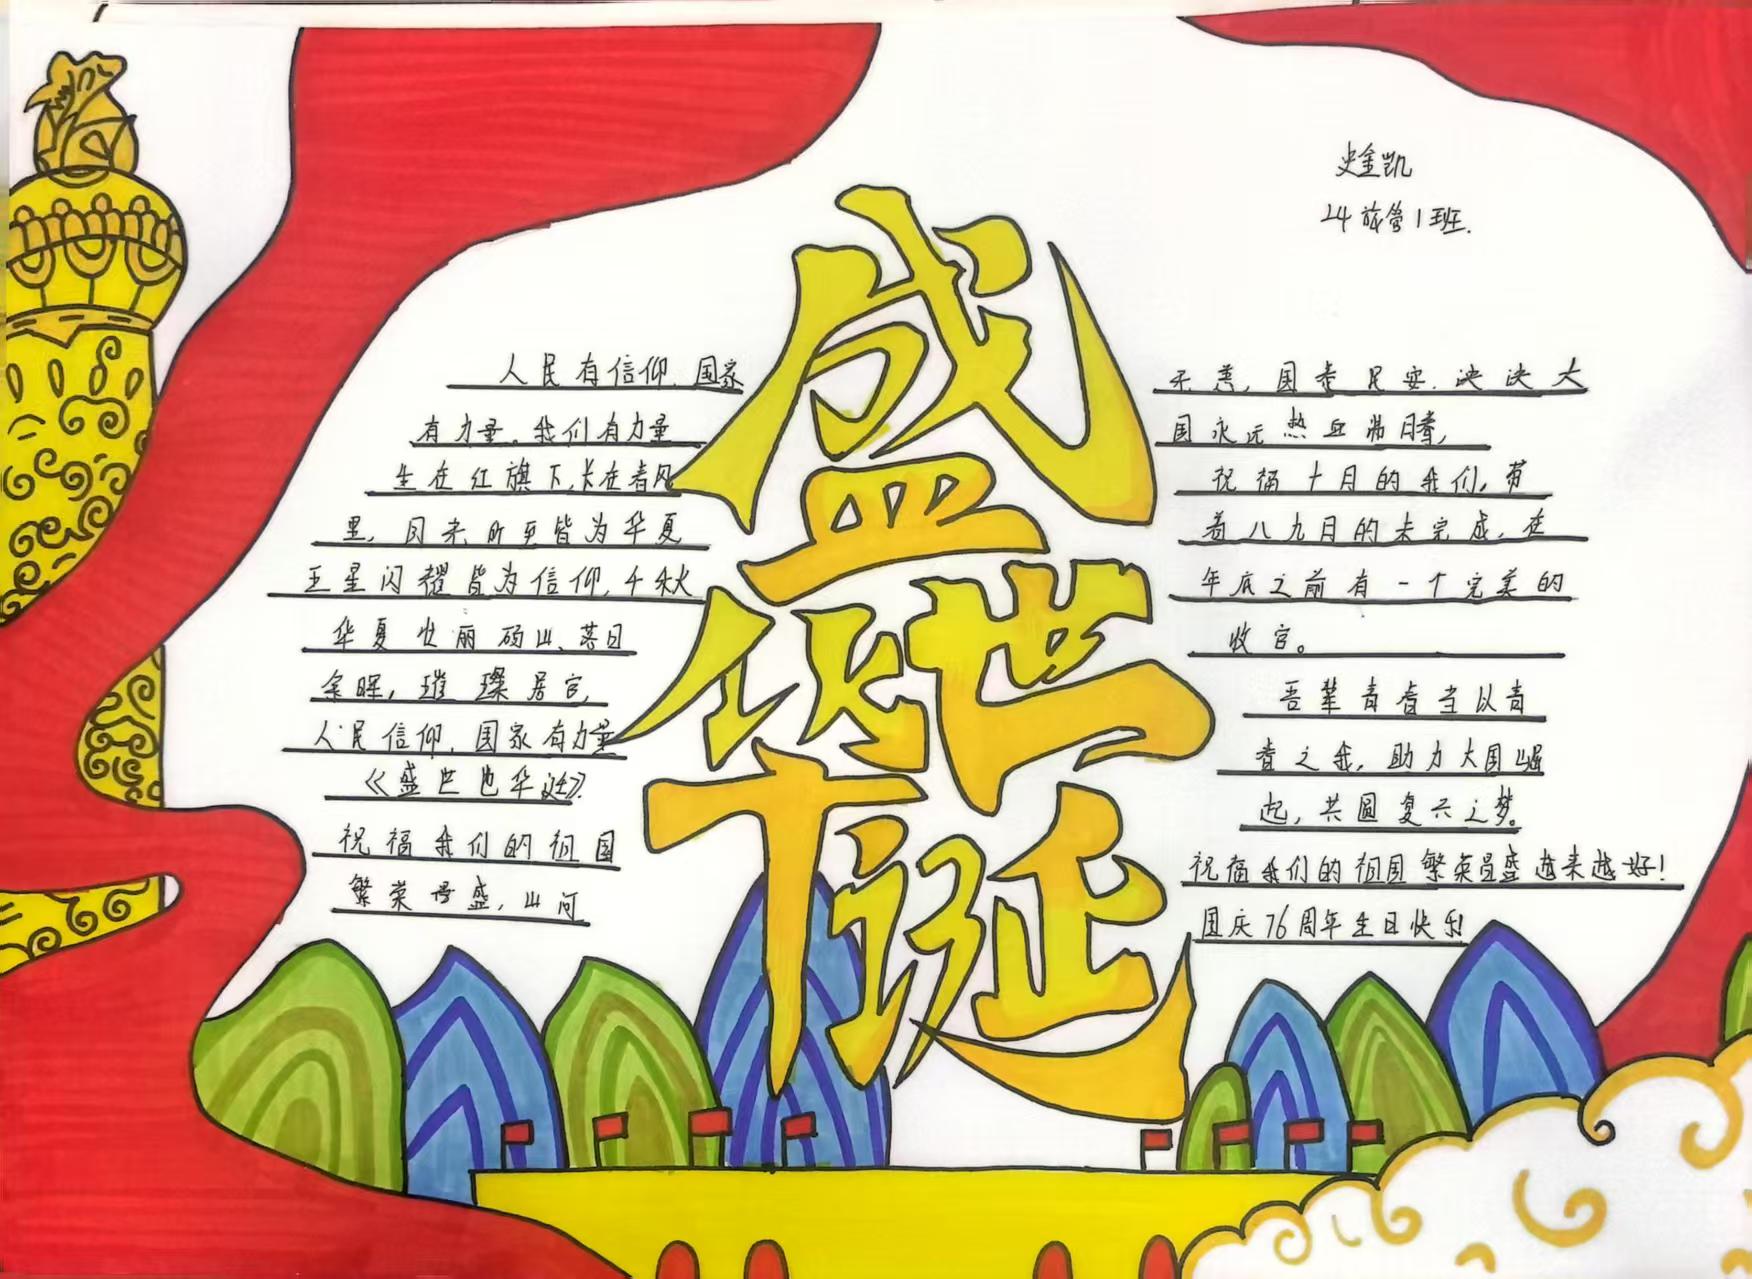 史金凯
24旅管1班.
盛世华诞
人民有信仰.国家
有力量.我们有力量
生在红旗下,长在春风
里,目来所更皆为华夏
五星闪耀皆为信仰,千秋
华夏壮丽硕山、落日
余晖,璀璨居宫,
人民信仰,国家有力量
《盛世也华诞》.
祝福我们的祖国
繁荣昌盛,山河
无恙,国泰民安.泱泱大
国永远热血沸腾,
祝福十月的我们,带
着八九月的未完成,在
年底之前有一个完美的
收官。
吾辈青春当以青
春之我,助力大国崛
起,共圆复兴之梦。
祝福我们的祖国繁荣昌盛越来越好!
国庆76周年生日快乐